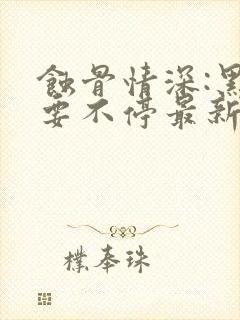 蝕骨情深:黑
要不停最新
樸奉珠